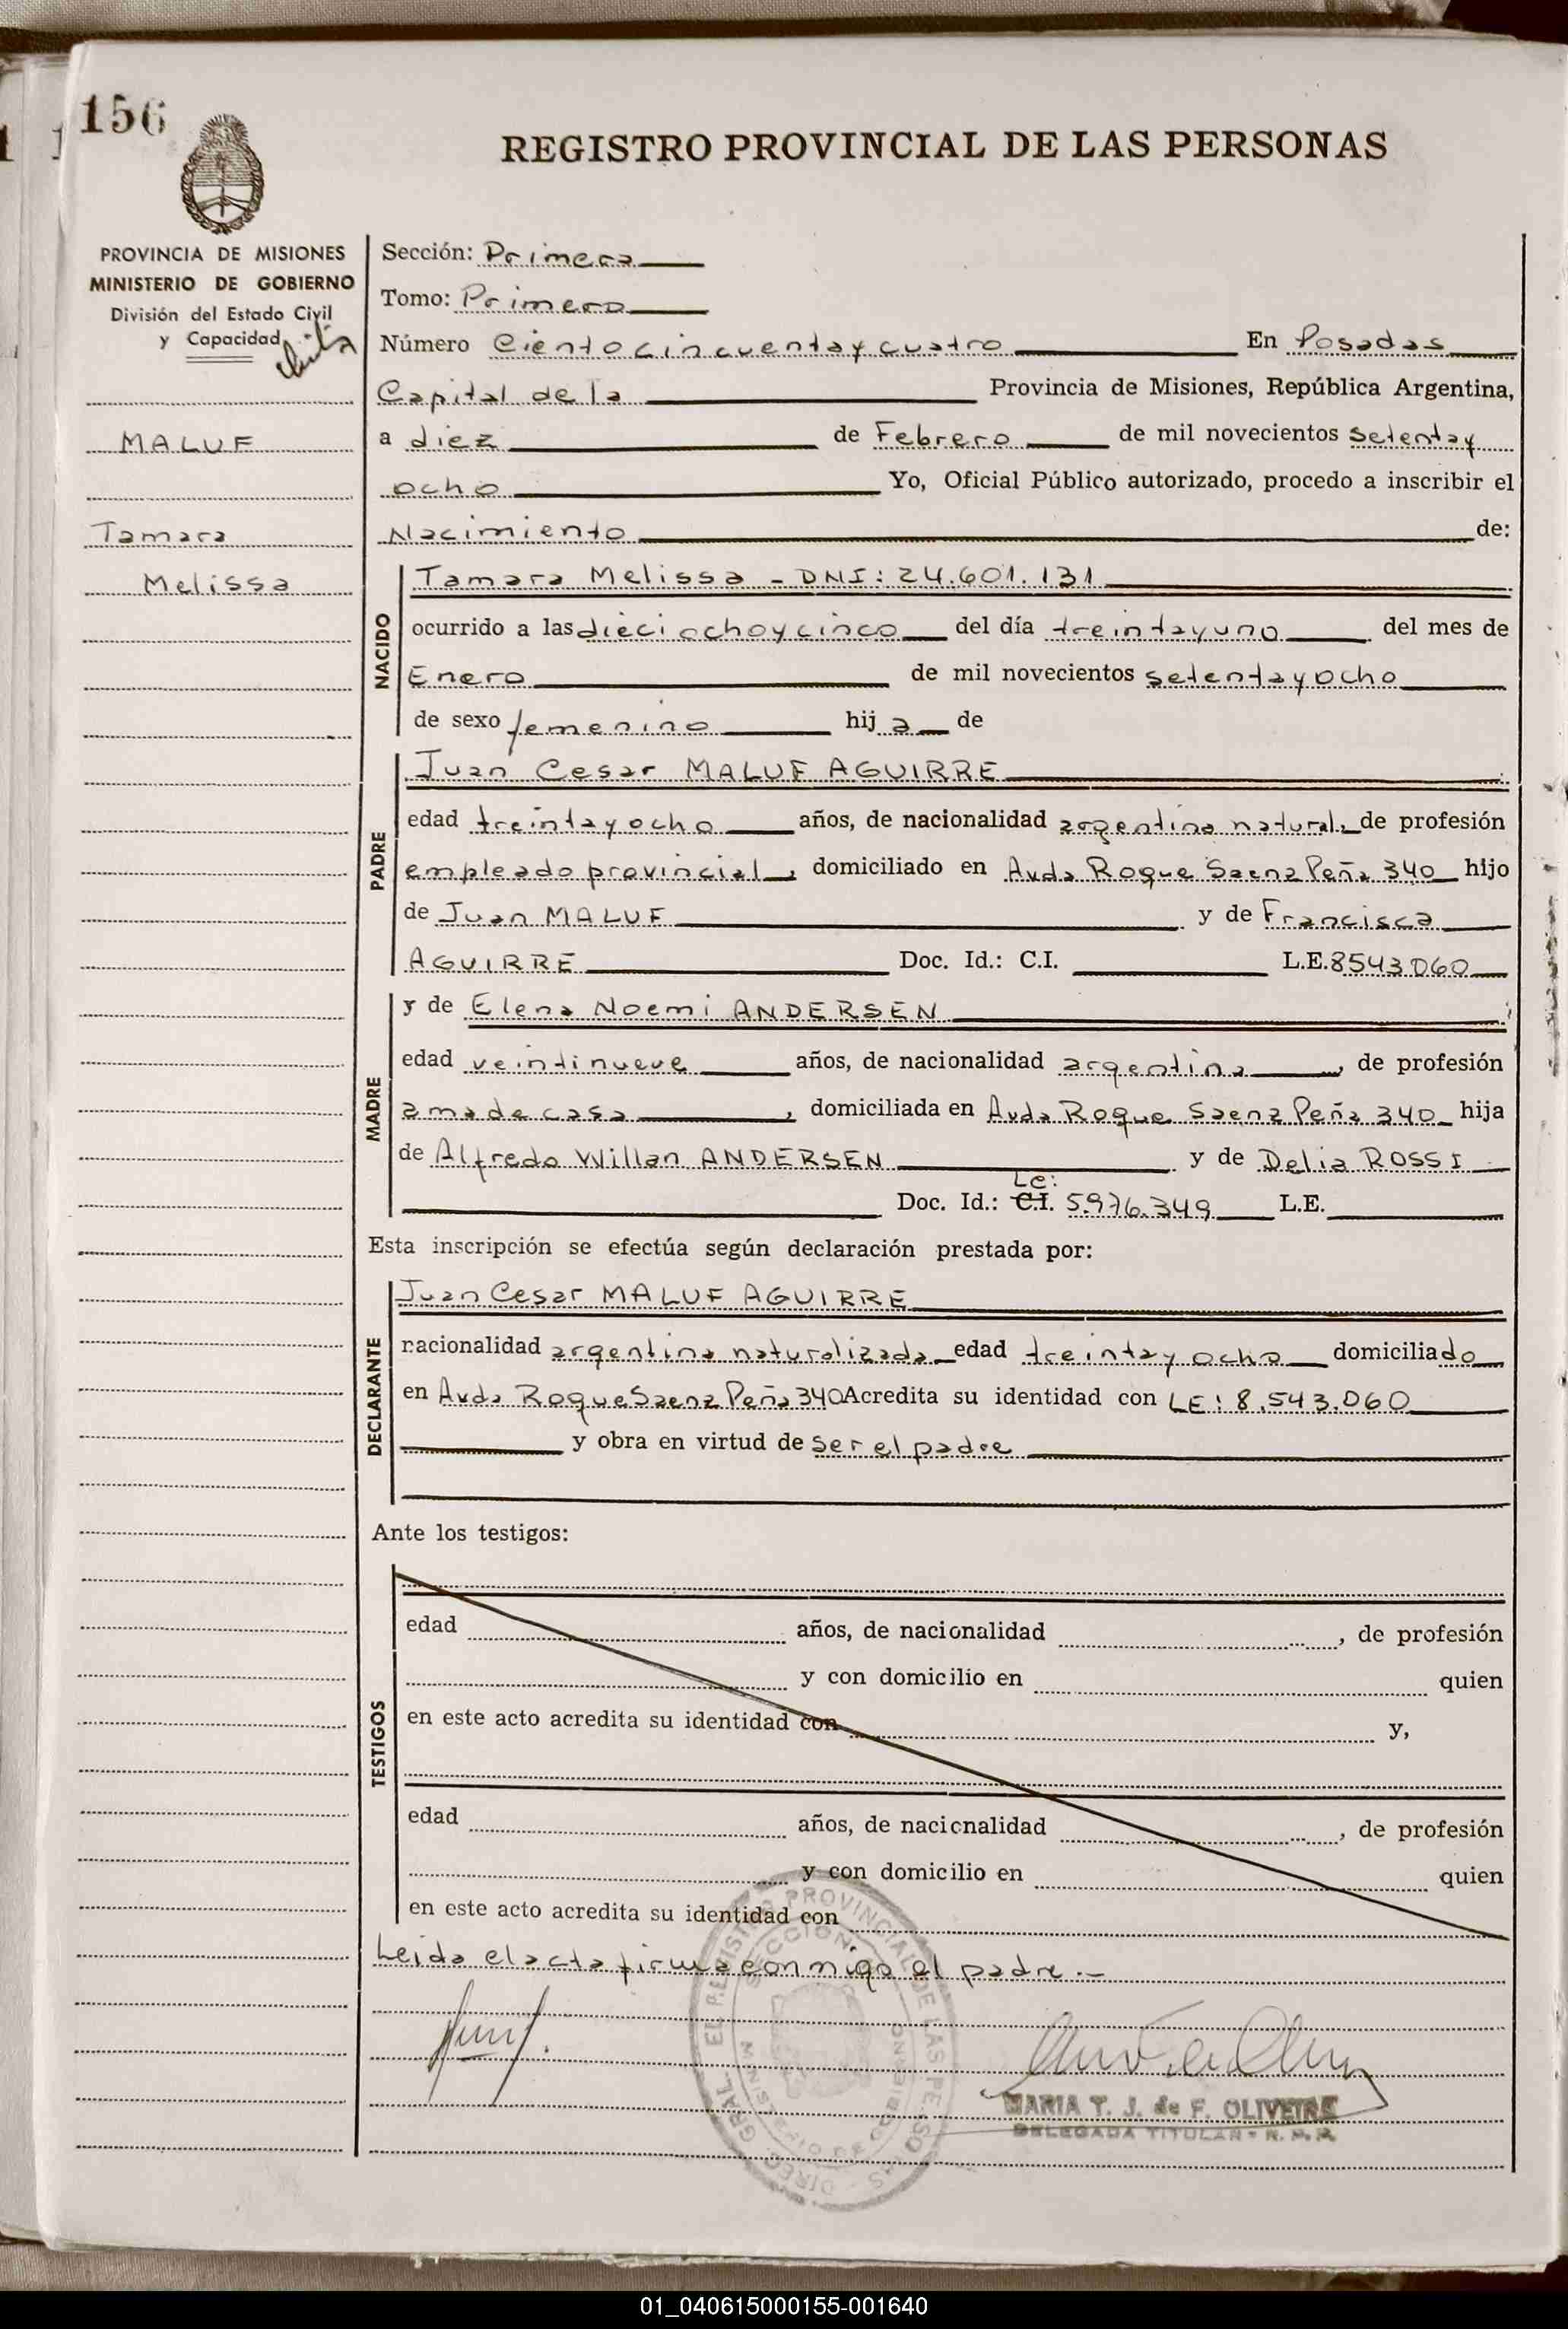 156
REGISTRO PROVINCIAL DE LAS PERSONAS
PROVINCIA DE MISIONES
MINISTERIO DE GOBIERNO
División del Estado Civil
y Capacidad
MALUF
Tamara
Melissa
Sección: Primera
Tomo: Primero
Número Ciento cincuenta y cuatro En Posadas
Capital de la Provincia de Misiones, República Argentina,
a diez de Febrero de mil novecientos setenta y
ocho Yo, Oficial Público autorizado, procedo a inscribir el
Nacimiento de:
NACIDO
Tamara Melissa - DNI: 24.601.131
ocurrido a las dieciocho y cinco del día treinta y uno del mes de
Enero de mil novecientos setenta y ocho
de sexo femenino hija de
PADRE
Juan Cesar MALUF AGUIRRE
edad treinta y ocho años, de nacionalidad argentino natural. de profesión
empleado provincial, domiciliado en Avda Roque Saenz Peña 340 hijo
de Juan MALUF y de Francisca
AGUIRRE Doc. Id.: C.I. L.E. 8543.060
MADRE
y de Elena Noemi ANDERSEN
edad veintinueve años, de nacionalidad argentina, de profesión
ama de casa, domiciliada en Avda Roque Saenz Peña 340 hija
de Alfredo Willan ANDERSEN y de Delia ROSSI
Doc. Id.: C.I. Lc: 5.976.349 L.E.
Esta inscripción se efectúa según declaración prestada por:
DECLARANTE
Juan Cesar MALUF AGUIRRE
nacionalidad argentino naturalizado edad treinta y ocho domiciliado
en Avda Roque Saenz Peña 340 Acredita su identidad con LE: 8.543.060
y obra en virtud de ser el padre
Ante los testigos:
TESTIGOS
edad años, de nacionalidad , de profesión
y con domicilio en quien
en este acto acredita su identidad con y,
edad años, de nacionalidad , de profesión
y con domicilio en quien
en este acto acredita su identidad con
Leida el acta firma conmigo el padre.-
DIREC. GRAL. EL REGISTRO PROVINCIAL DE LAS PERSONAS
SECCION
MINISTERIO DE GOBIERNO
MARIA T. J. de F. OLIVEIRA
DELEGADA TITULAR - R. P. P.
01_040615000155-001640